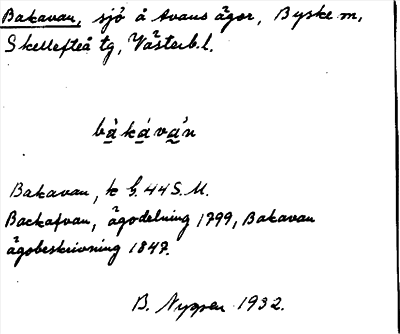 Bakavan, sjö å Avans ägor, Byske sn,
Skellefteå tg, Västerb.l.
bàkáván
Bakavan, k bl. 44 S.M.
Backafvan, ägodelning 1799, Bakavan
ägobeskrivning 1847.
B. Nygren 1932.